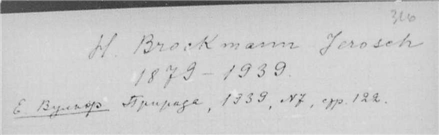 316
H. Brockmann Jerosch
1879-1939.
Е. Вульф. Природа, 1939, N7, стр. 122.